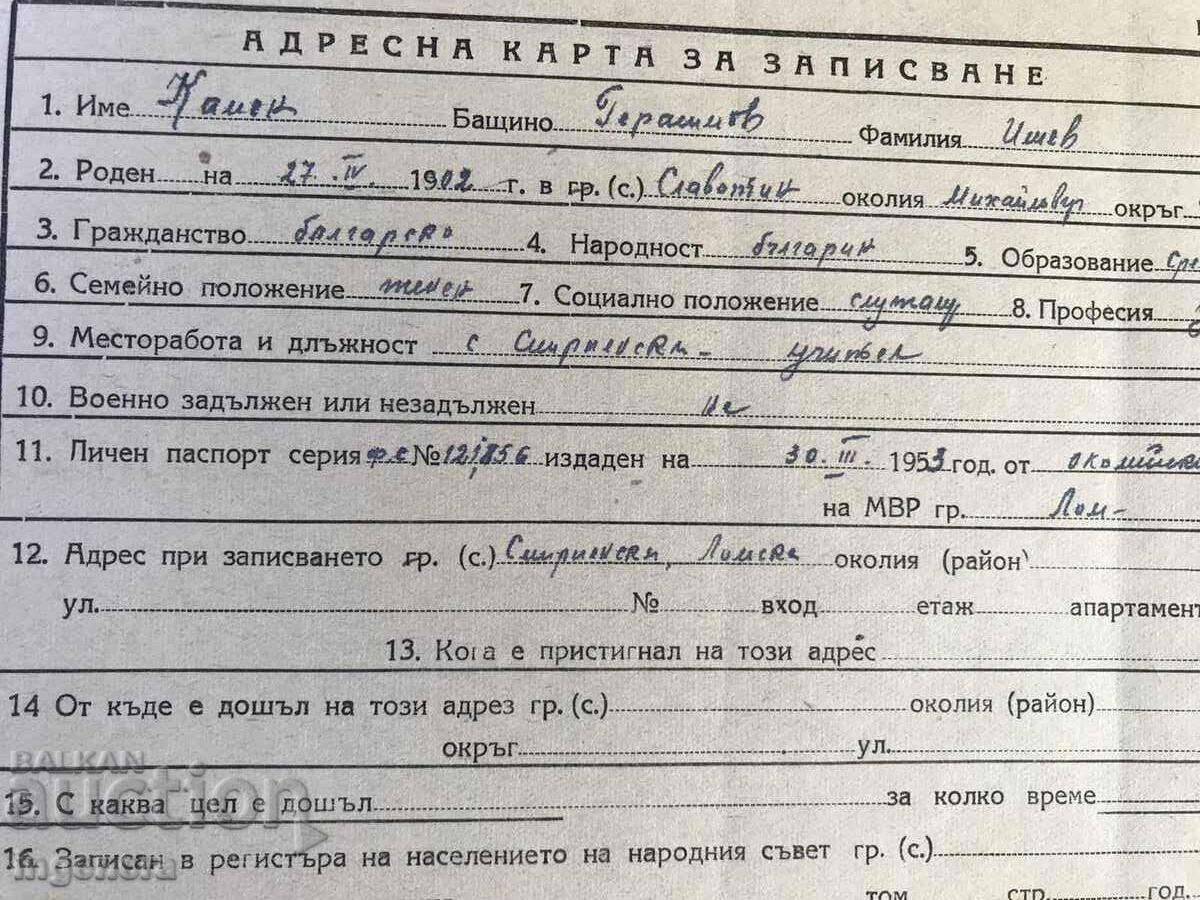 АДРЕСНА КАРТА ЗА ЗАПИСВАНЕ
1. Име Камен Бащино Герасимов Фамилия Ишев
2. Роден на 27. IV. 1902 г. в гр. (с.) Славотин околия Михайловгр окръг
3. Гражданство българско 4. Народност българин 5. Образование Сре
6. Семейно положение женен 7. Социално положение служащ 8. Професия
9. Месторабота и длъжност с Смирненски - учител
10. Военно задължен или незадължен не
11. Личен паспорт серия № 121856 издаден на 30. III. 1953 год. от околийско
на МВР гр. Лом -
12. Адрес при записването гр. (с.) Смирненски, Ломска околия (район
ул. № вход етаж апартамент
13. Кога е пристигнал на този адрес
14 От къде е дошъл на този адрез гр. (с.) околия (район)
окръг ул.
BALKAN
auction
15. С каква цел е дошъл за колко време
16. Записан в регистъра на населението на народния съвет гр. (с.)
ingenera
том стр. год.